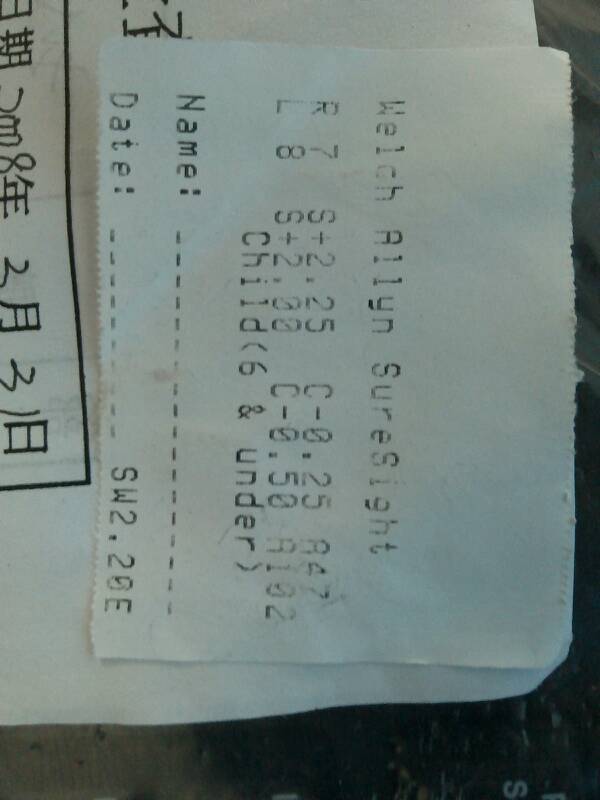 Welch Allyn SureSight
R 7 S+2.25 C-0.25 A47
L 8 S+2.00 C-0.50 A102
Child(6 & under)
Name: ----------------
Date: ----------- SW2.20E
年 3月31日